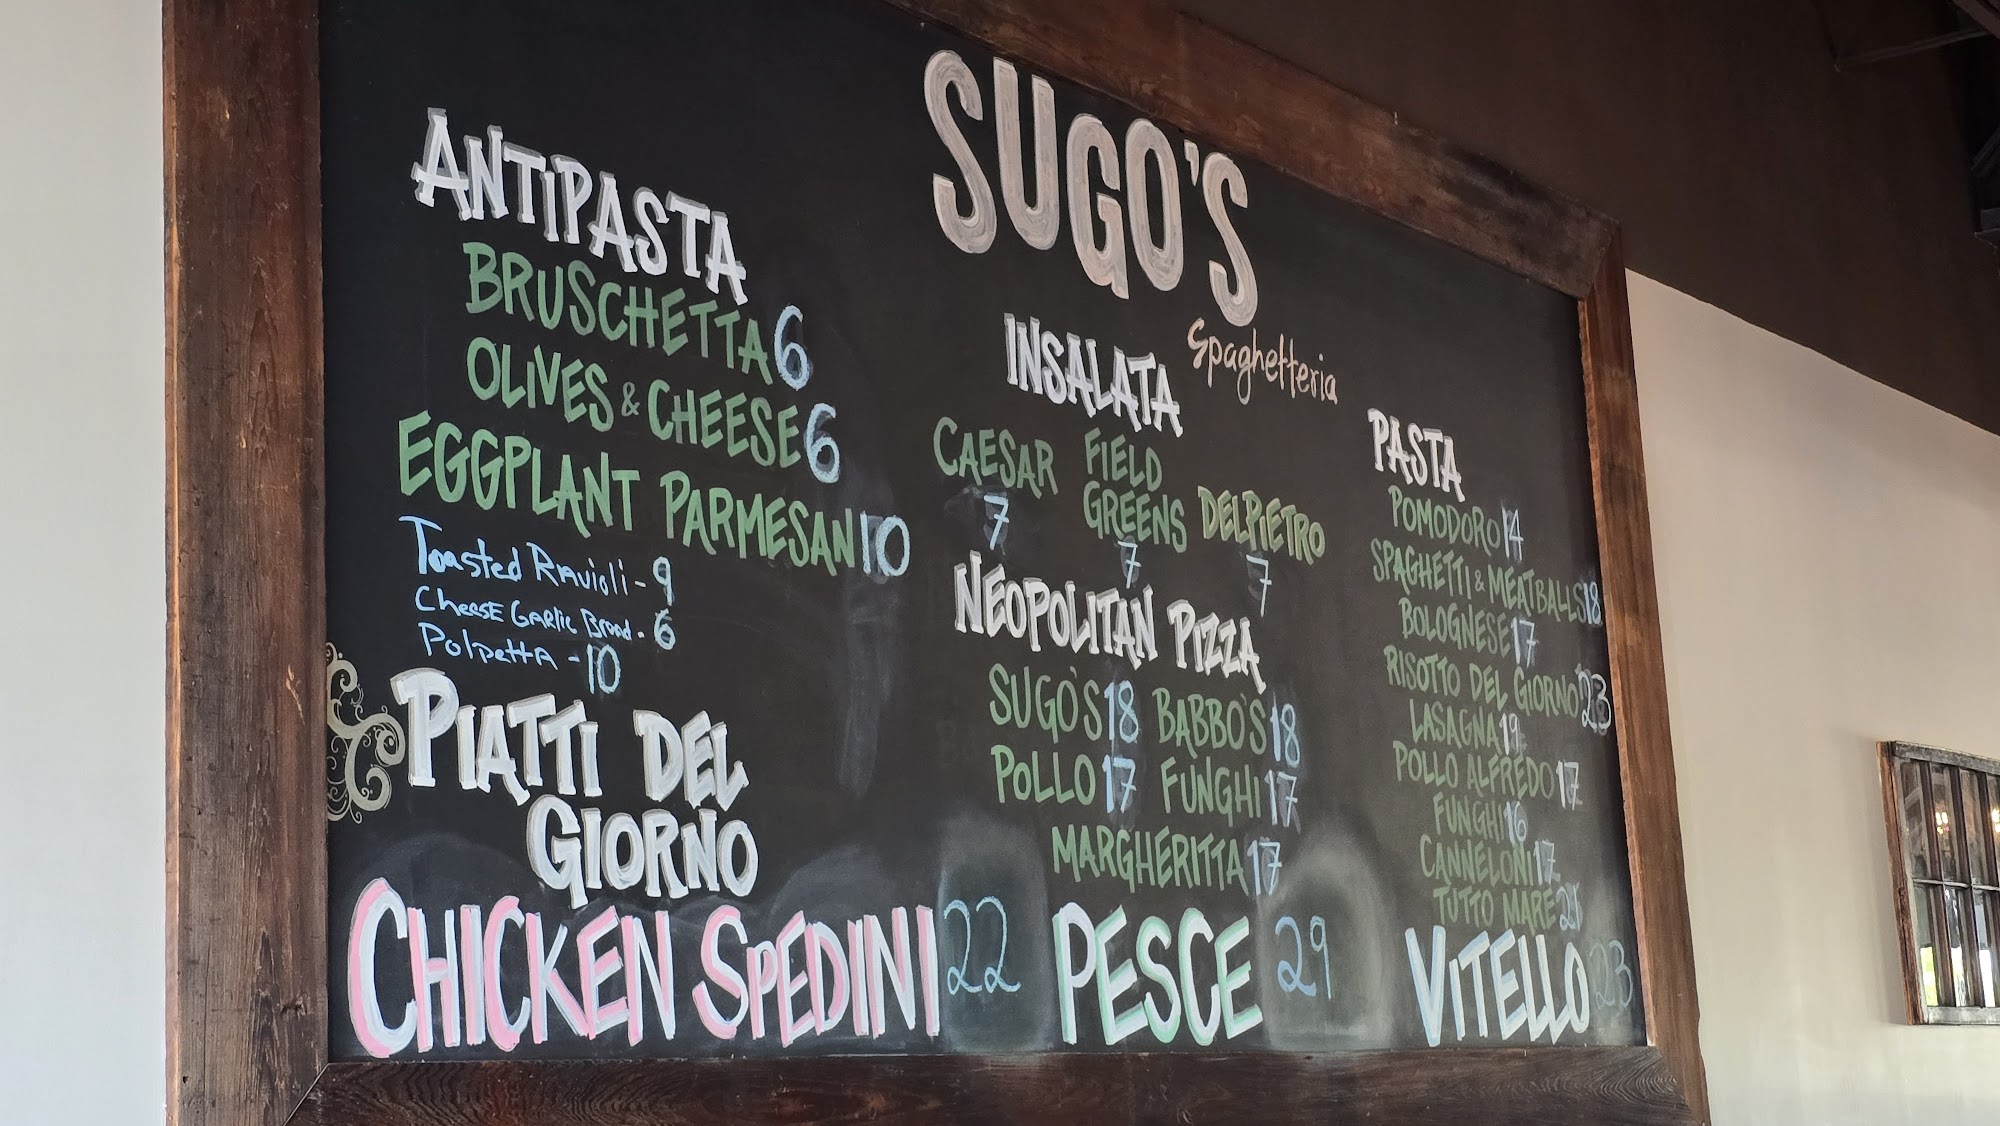 SUGO'S
Spaghetteria
ANTIPASTA
BRUSCHETTA 6
OLIVES & CHEESE 6
EGGPLANT PARMESAN 10
Toasted Ravioli - 9
Cheese Garlic Bread - 6
Polpetta - 10
INSALATA
CAESAR 7
FIELD GREENS 7
DELPIETRO 7
NEOPOLITAN PIZZA
SUGO'S 18 BABBO'S 18
POLLO 17 FUNGHI 17
MARGHERITTA 17
PASTA
POMODORO 14
SPAGHETTI & MEATBALLS 18
BOLOGNESE 17
RISOTTO DEL GIORNO 23
LASAGNA 19
POLLO ALFREDO 17
FUNGHI 16
CANNELONI 17
TUTTO MARE 21
PIATTI DEL
GIORNO
CHICKEN SPEDINI 22 PESCE 29 VITELLO 23